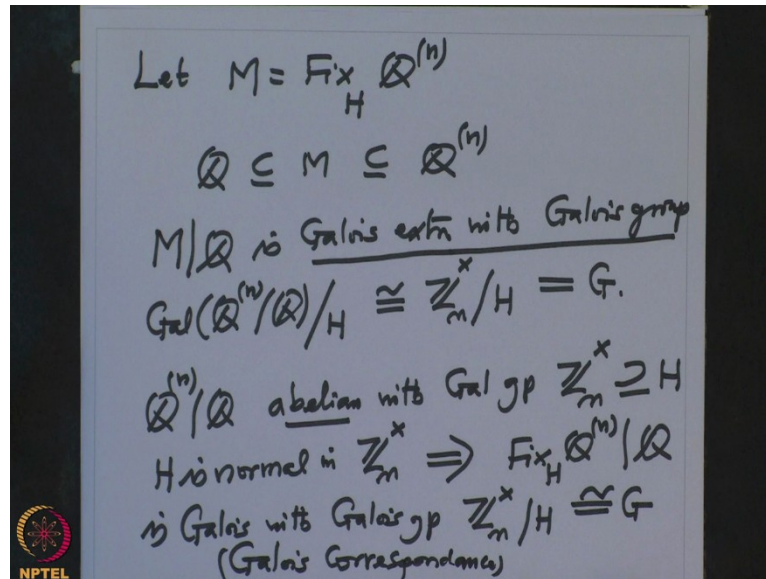 Let M = Fix_H ℚ^(n)
ℚ ⊆ M ⊆ ℚ^(n)
M|ℚ is Galois extn with Galois group
Gal(ℚ^(n)/ℚ)/H ≅ ℤ_m^× / H = G.
ℚ^(n)/ℚ abelian with Gal gp ℤ_m^× ⊇ H
H is normal in ℤ_m^× ⟹ Fix_H ℚ^(n)|ℚ
is Galois with Galois gp ℤ_m^× / H ≅ G
(Galois Correspondance)
NPTEL